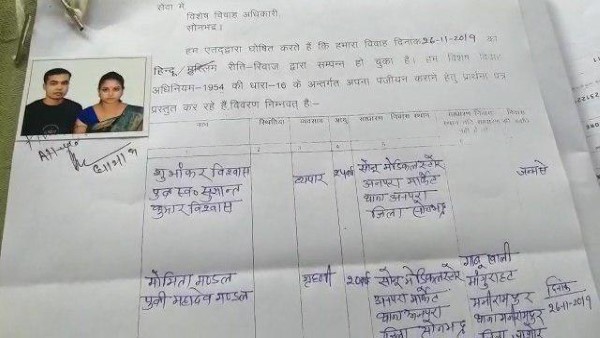 सेवा में
विशेष विवाह अधिकारी,
सोनभद्र।
हम एतद्द्वारा घोषित करते हैं कि हमारा विवाह दिनांक 26-11-2019 का
हिन्दू/मुस्लिम रीति-रिवाज द्वारा सम्पन्न हो चुका है। हम विशेष विवाह
अधिनियम-1954 की धारा-16 के अन्तर्गत अपना पंजीयन कराने हेतु प्रार्थना पत्र
प्रस्तुत कर रहे हैं, विवरण निम्नवत् है:-
नाम व्यवसाय आयु साधारण निवास स्थान
शुभांकर विश्वास व्यापार 24वर्ष सोनू मेडिकल स्टोर जन्मसे
पुत्र स्व० सुशान्त अनपरा मार्केट
कुमार विश्वास थाना अनपरा
जिला सोनभद्र
मोमिता मण्डल गृहणी 20वर्ष सोनू मेडिकल स्टोर
पुत्री महादेव मण्डल अनपरा मार्केट मनीरामपुर दिनांक
थाना अनपरा थाना मनीरामपुर 26-11-2019
जिला सोनभद्र जिला